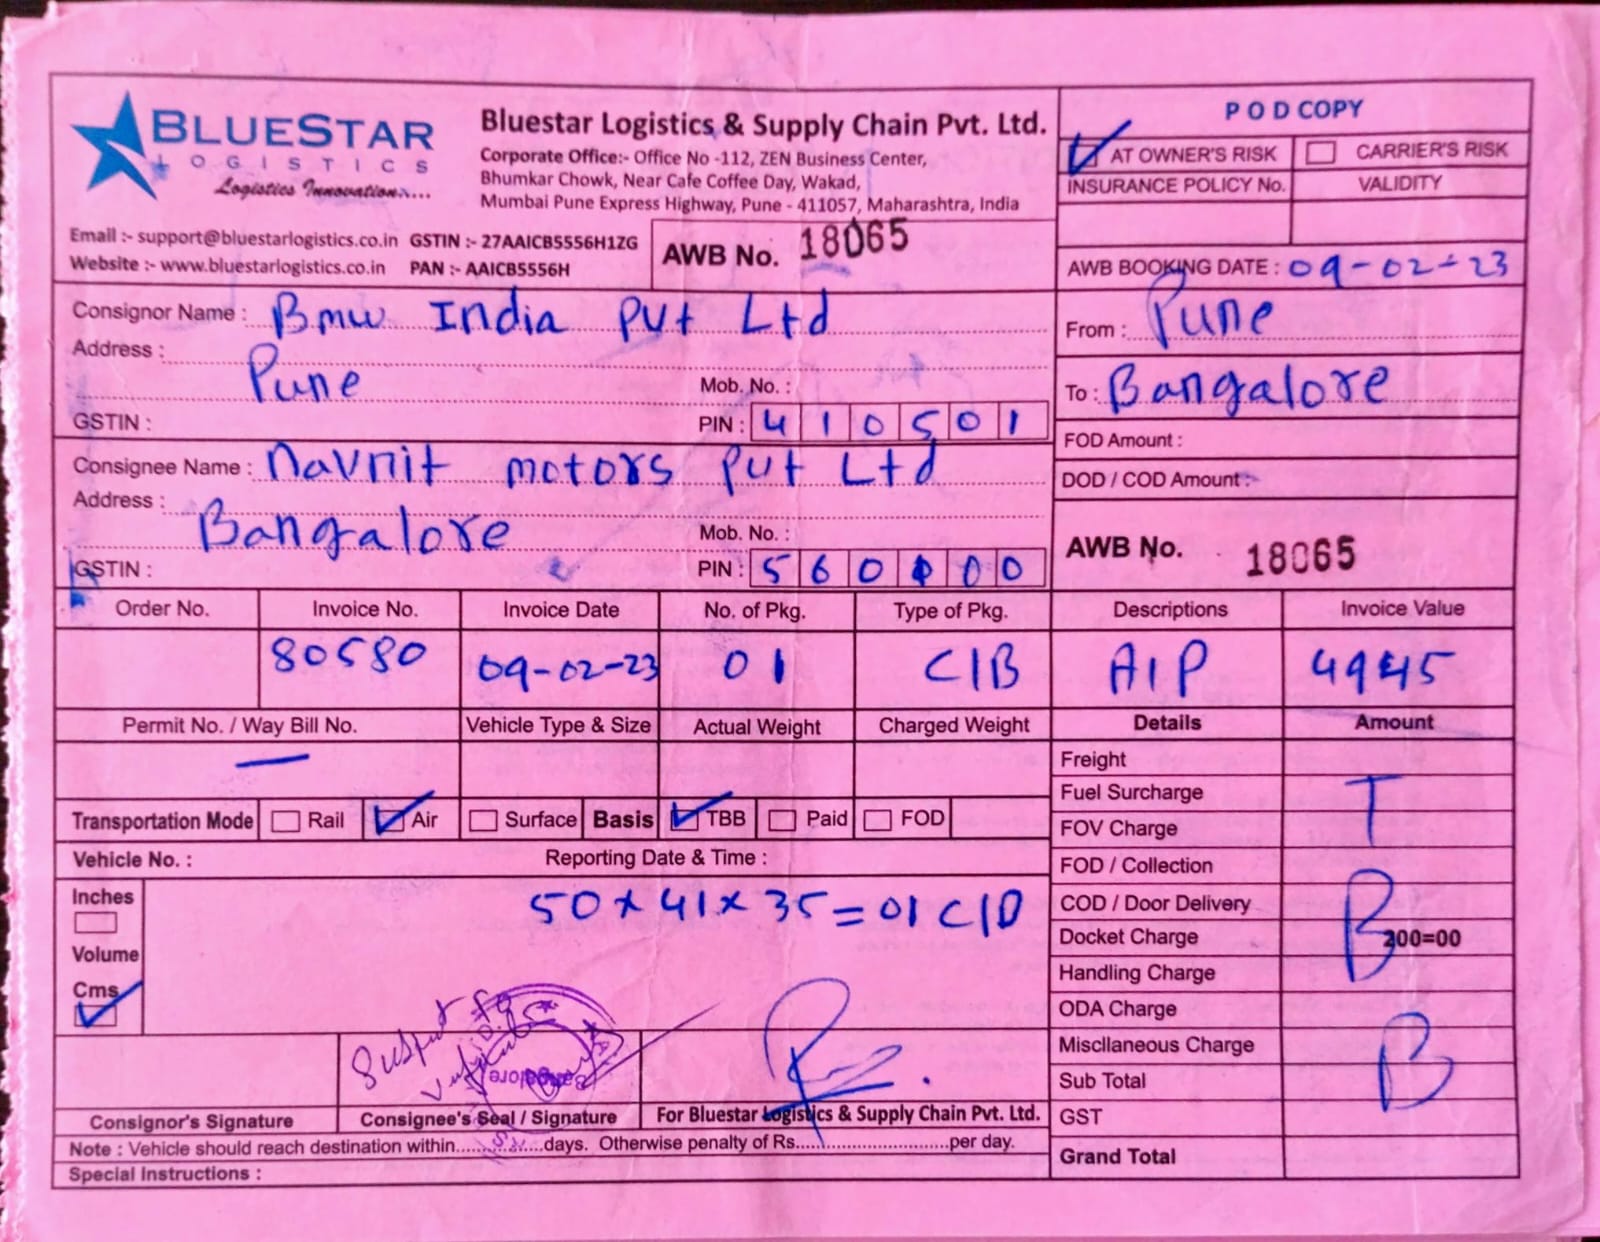 BLUESTAR
LOGISTICS
Logistics Innovation.....
Bluestar Logistics & Supply Chain Pvt. Ltd.
Corporate Office:- Office No -112, ZEN Business Center,
Bhumkar Chowk, Near Cafe Coffee Day, Wakad,
Mumbai Pune Express Highway, Pune - 411057, Maharashtra, India
Email :- support@bluestarlogistics.co.in GSTIN :- 27AAICB5556H1ZG
Website :- www.bluestarlogistics.co.in PAN :- AAICB5556H
AWB No. 18065
POD COPY
AT OWNER'S RISK CARRIER'S RISK
INSURANCE POLICY No. VALIDITY
AWB BOOKING DATE : 09-02-23
Consignor Name : Bmw India Pvt Ltd
Address :
Pune
Mob. No. :
GSTIN :
PIN : 410501
From : Pune
To : Bangalore
FOD Amount :
DOD / COD Amount :
Consignee Name : Navnit motors Pvt Ltd
Address :
Bangalore
Mob. No. :
GSTIN :
PIN : 560000
AWB No. 18065
Order No. Invoice No. Invoice Date No. of Pkg. Type of Pkg. Descriptions Invoice Value
80580 09-02-23 01 C/B A/P 4945
Permit No. / Way Bill No. Vehicle Type & Size Actual Weight Charged Weight Details Amount
—
Transportation Mode Rail Air Surface Basis TBB Paid FOD
Vehicle No. : Reporting Date & Time :
Inches
Volume
Cms
50 x 41 x 35 = 01 C/B
Freight
Fuel Surcharge
T
FOV Charge
FOD / Collection
COD / Door Delivery
B
Docket Charge 200=00
Handling Charge
ODA Charge
Miscllaneous Charge
Sub Total
B
GST
Grand Total
Bangalore
Consignor's Signature Consignee's Seal / Signature For Bluestar Logistics & Supply Chain Pvt. Ltd.
Note : Vehicle should reach destination within...............days. Otherwise penalty of Rs...........................per day.
Special Instructions :